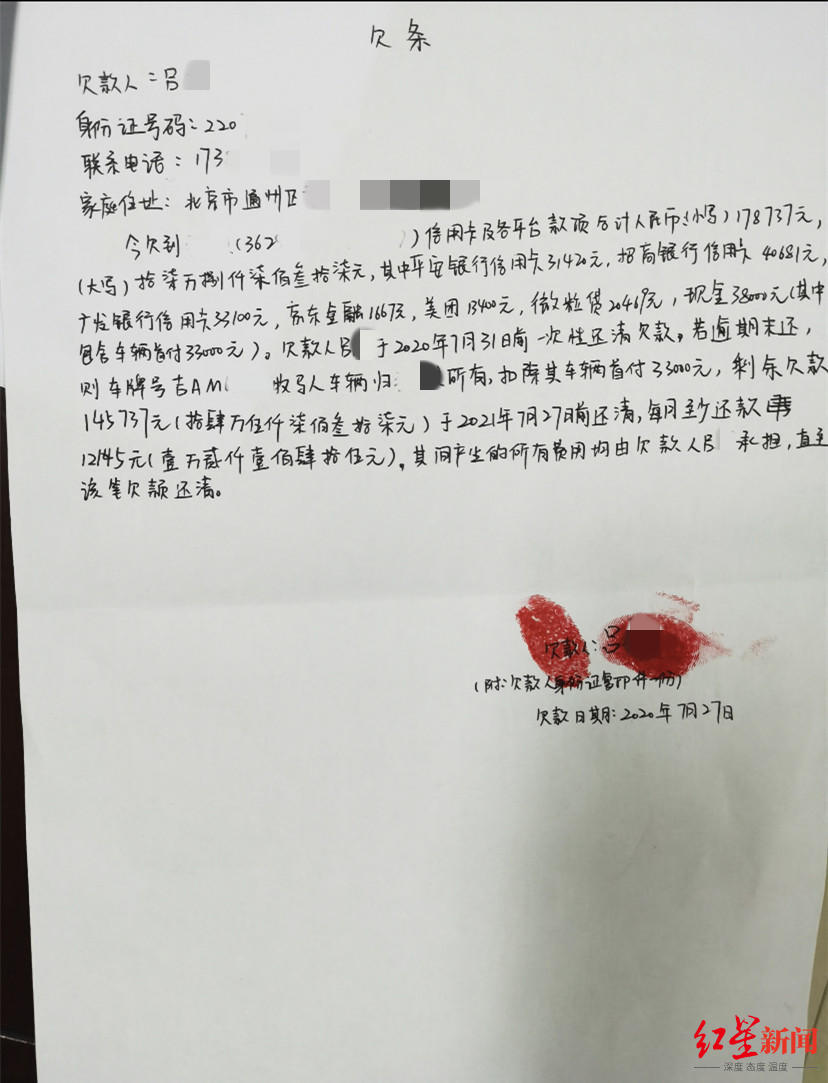 欠条
欠款人：吕
身份证号码：220
联系电话：173
家庭住址：北京市通州区
今欠到 (362 )信用卡及各平台款项合计人民币(小写)178737元，
(大写)拾柒万捌仟柒佰叁拾柒元，其中平安银行信用卡31420元，招商银行信用卡40681元，
广发银行信用卡33100元，京东金融1667元，美团13400元，微粒贷20469元，现金38000元(其中
包含车辆首付33000元)。欠款人吕 于2020年7月31日前一次性还清欠款。若逾期未还，
则车牌号吉AM 牧马人车辆归 所有，扣除其车辆首付33000元，剩余欠款
145737元(拾肆万伍仟柒佰叁拾柒元)于2021年7月27日前还清，每月至少还款
12145元(壹万贰仟壹佰肆拾伍元)。其间产生的所有费用均由欠款人吕 承担，直至
该笔欠款还清。
欠款人：吕
(附：欠款人身份证复印件一份)
欠款日期：2020年7月27日
红星新闻
深度 态度 温度